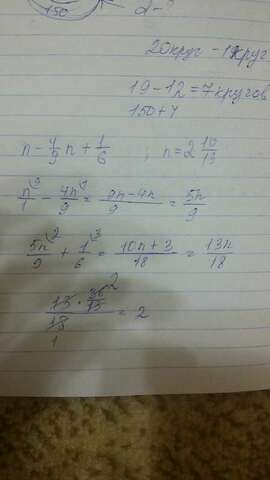 150
2 круг - 1 круг
19-12=7 кругов
150+4
n - 4/9 n + 1/6 ; n = 2 10/13
n/1 - 4n/9 = 9n-4n/9 = 5n/9
5n/9 + 1/6 = 10n+3/18 = 13n/18
13/18 · 36/13 = 2
1